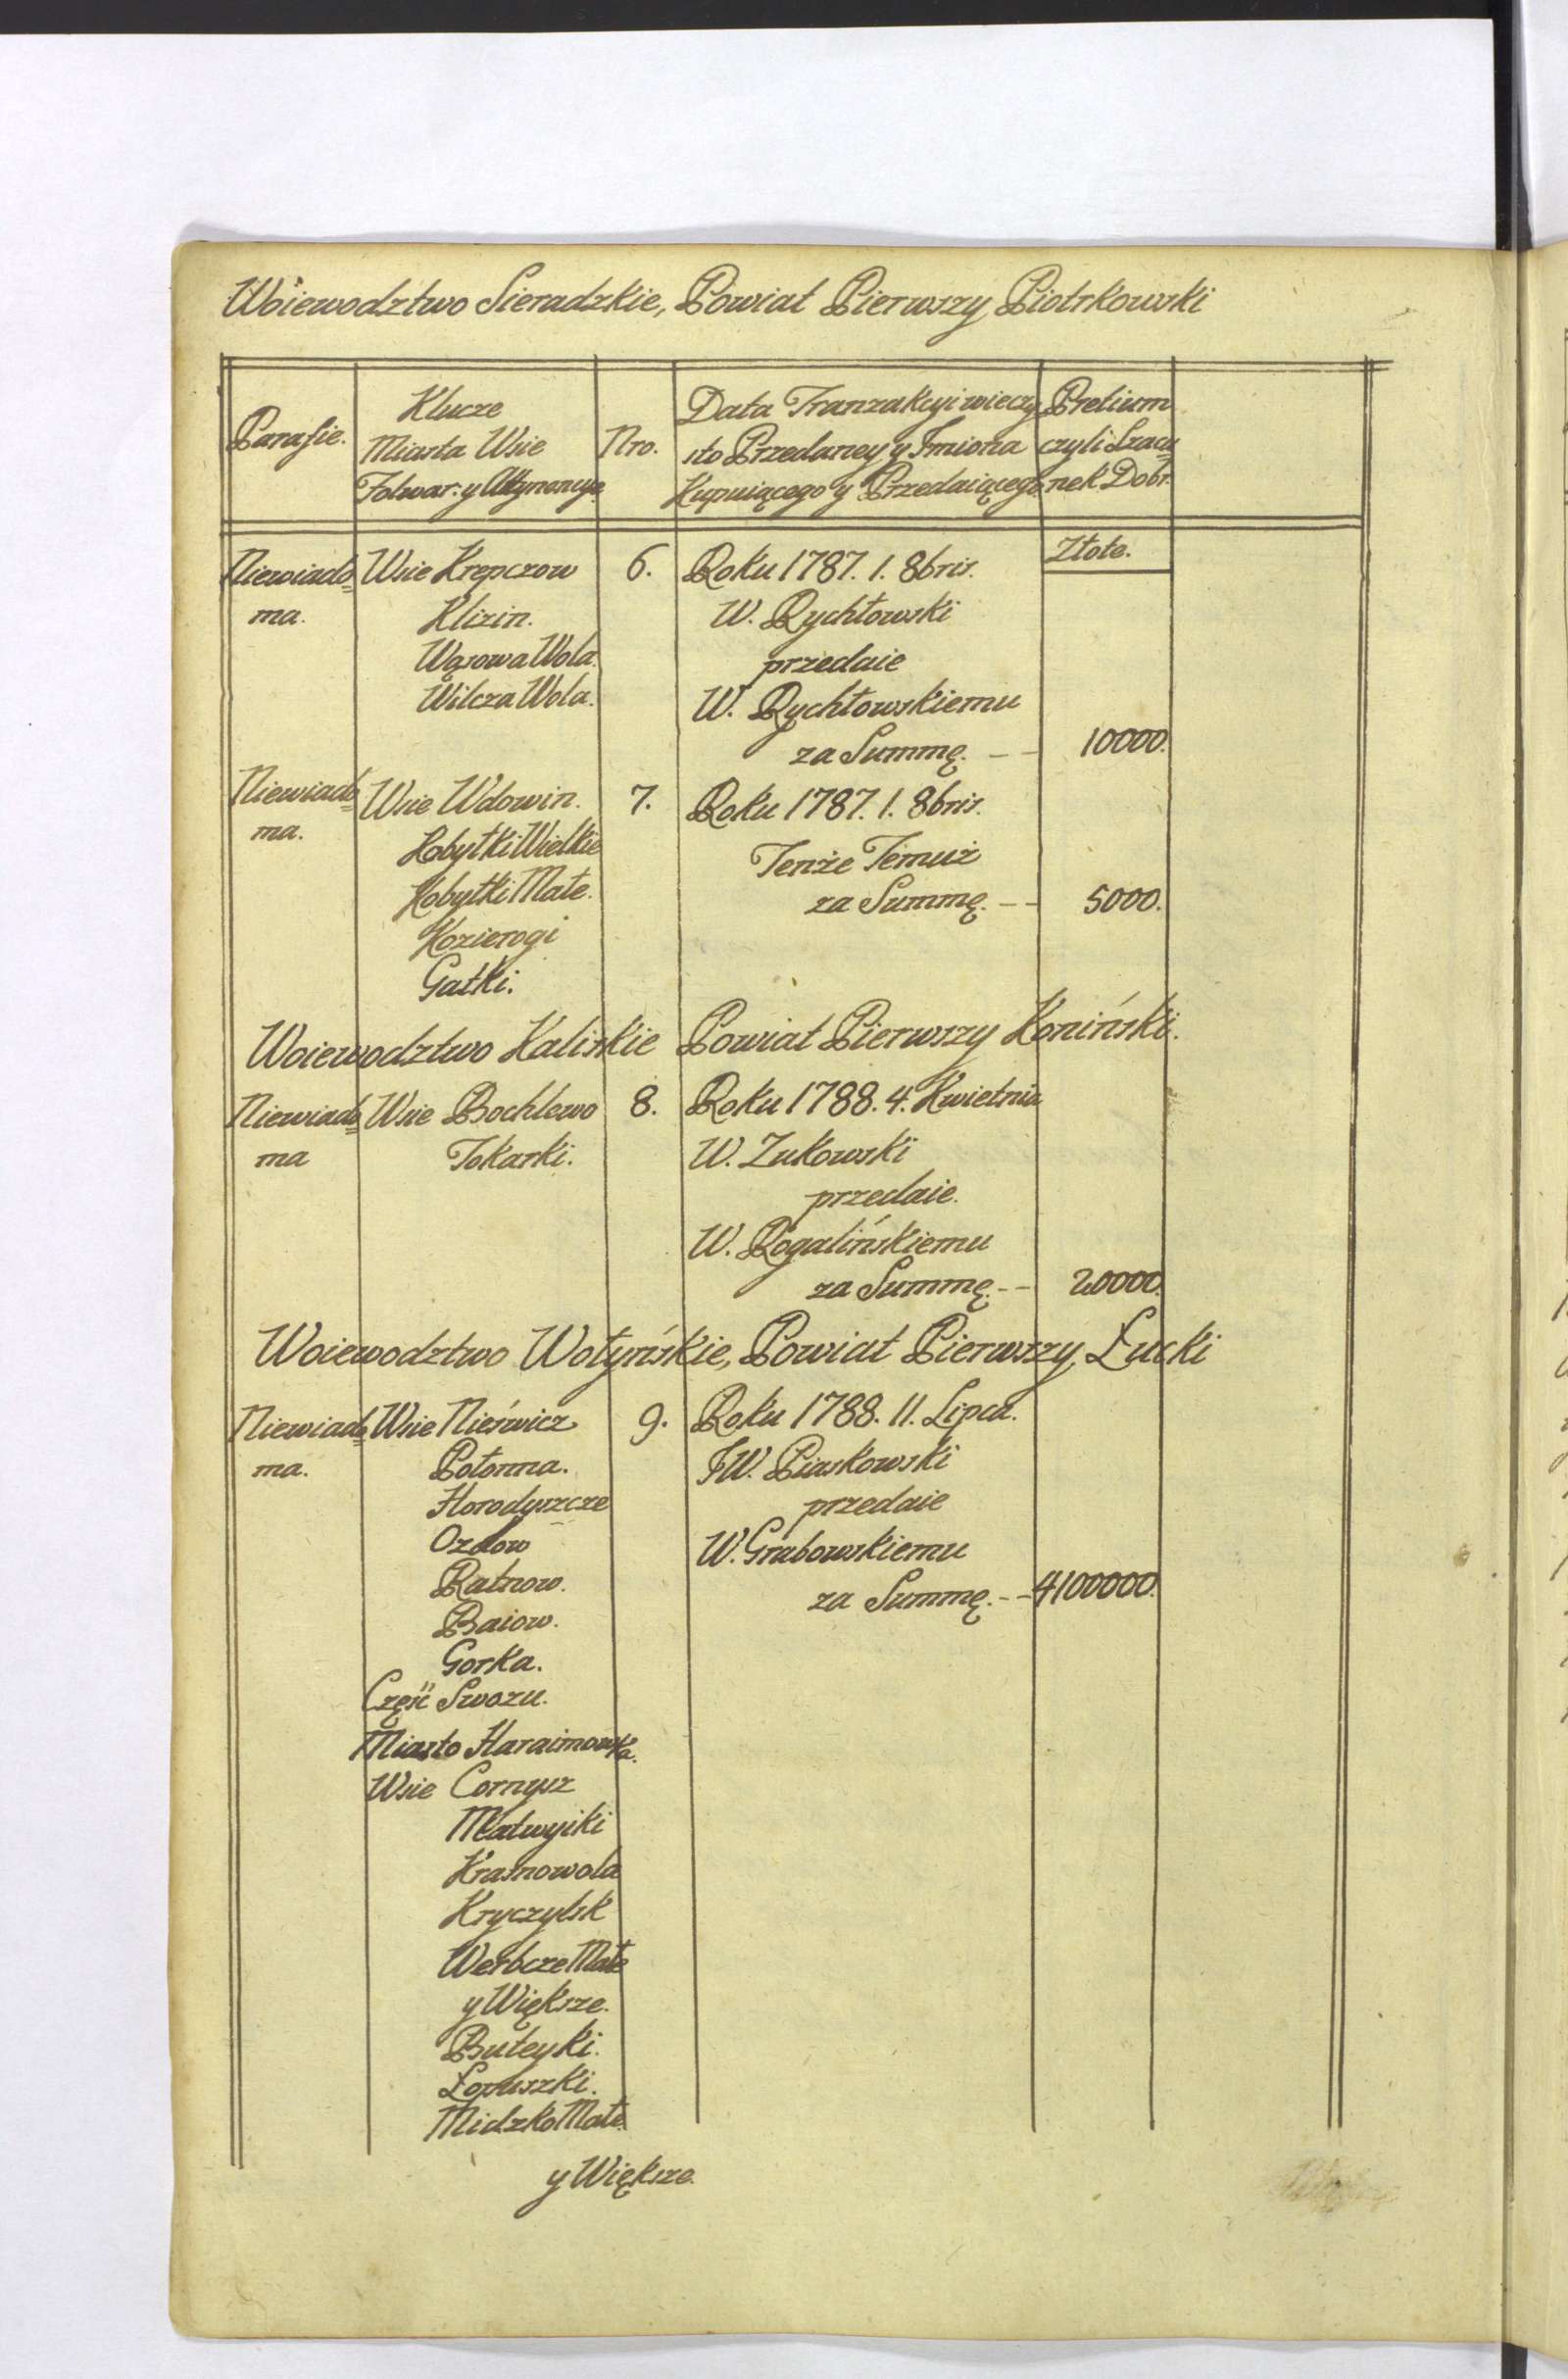 Woiewodztwo Sieradzkie, Powiat Pierwszy Piotrkowski
Parafie.
Klucze
Miasta Wsie
Folwar: y Attynencye
Nro.
Data Tranzakcyi wieczy
sto Przedaney y Imiona
Kupuiącego y Przedaiącego
Pretium
czyli Szacu=
nek Dobr.
Złote.
Niewiado=
ma.
Wsie Krepczow
Klizin.
Wąsowa Wola.
Wilcza Wola.
6.
Roku 1787. 1. 8bris.
W. Rychłowski
przedaie
W. Rychłowskiemu
za Summę. - - 10000.
Niewiado=
ma.
Wsie Wdowin.
Kobyłki Wielkie
Kobyłki Małe.
Kozierogi
Gałki.
7.
Roku 1787. 1. 8bris.
Tenże Temuż
za Summę. - - 5000.
Woiewodztwo Kaliskie Powiat Pierwszy Koniński.
Niewiado=
ma
Wsie Bochlewo
Tokarki.
8.
Roku 1788. 4. Kwietnia
W. Zukowski
przedaie.
W. Rogalińskiemu
za Summę. - - 20000.
Woiewodztwo Wołyńskie, Powiat Pierwszy Łucki
Niewiado=
ma.
Wsie Nieświcz
Połonna.
Horodyszcze
Ozdow
Ratnow.
Baiow.
Gorka.
Część Swozu.
Miasto Haraimowka.
Wsie Cornysz
Matwyiki
Krasnowola
Kryczylsk
Werbcze Małe
y Większe.
Buteyki.
Łopuszki.
Midzko Małe.
y Większe.
9.
Roku 1788. 11. Lipca.
JW. Piaskowski
przedaie
W. Grabowskiemu
za Summę. - - 4100000.